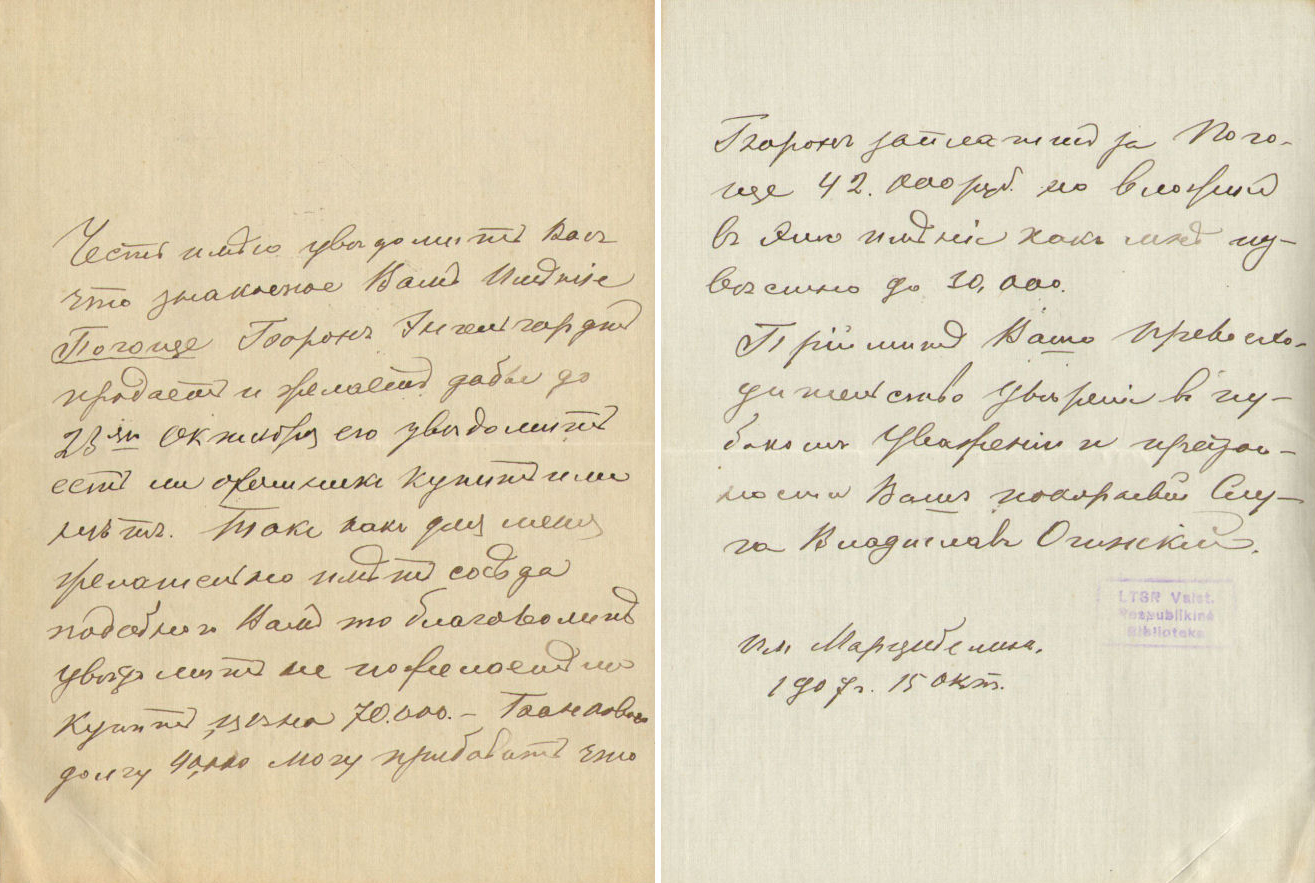 Честь имѣю увѣдомить Васъ
что знакомое Вамъ Имѣніе
Погонце Баронъ Энгельгардтъ
продаетъ и желаетъ дабы до
23го Октября его увѣдомить
есть ли охотники купить или
нѣтъ. Такъ какъ для меня
желательно имѣть сосѣда
подобнаго Вамъ то благоволитъ
увѣдомить не пожелаетъ ли
купить, цѣна 70.000. – Банковаго
долгу 40,000 могу прибавить что
Баронъ заплатилъ за Пого-
нце 42.000 руб. но вложилъ
въ это имѣніе какъ мнѣ из-
вѣстно до 30,000.
Пріймитъ Ваше Превосхо-
дительство Увѣреніе въ глу-
бокомъ Уваженіи и предан-
ности Вашъ покорнѣй Слу-
га Владиславъ Огинскій.
им Марцибелина.
1907г. 15 Окт.
LTSR Valst.
Respublikinė
Biblioteka